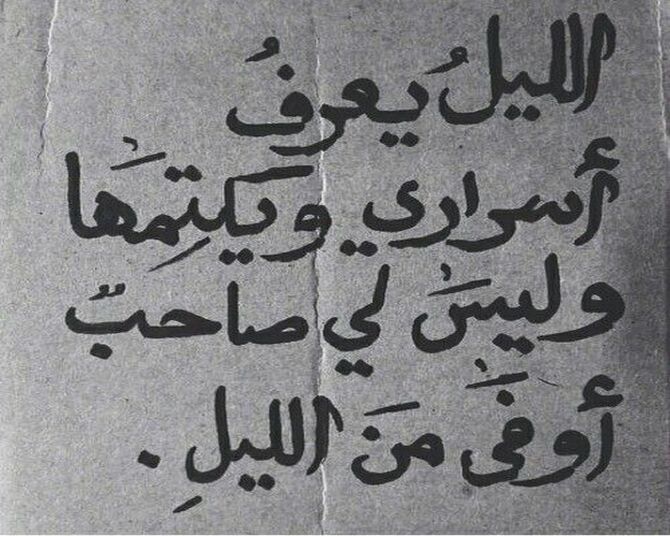 الليلُ يعرفُ
أسراري ويَكتِمَها
وليسَ لي صاحبٌ
أوفَى مَنَ الليلِ.